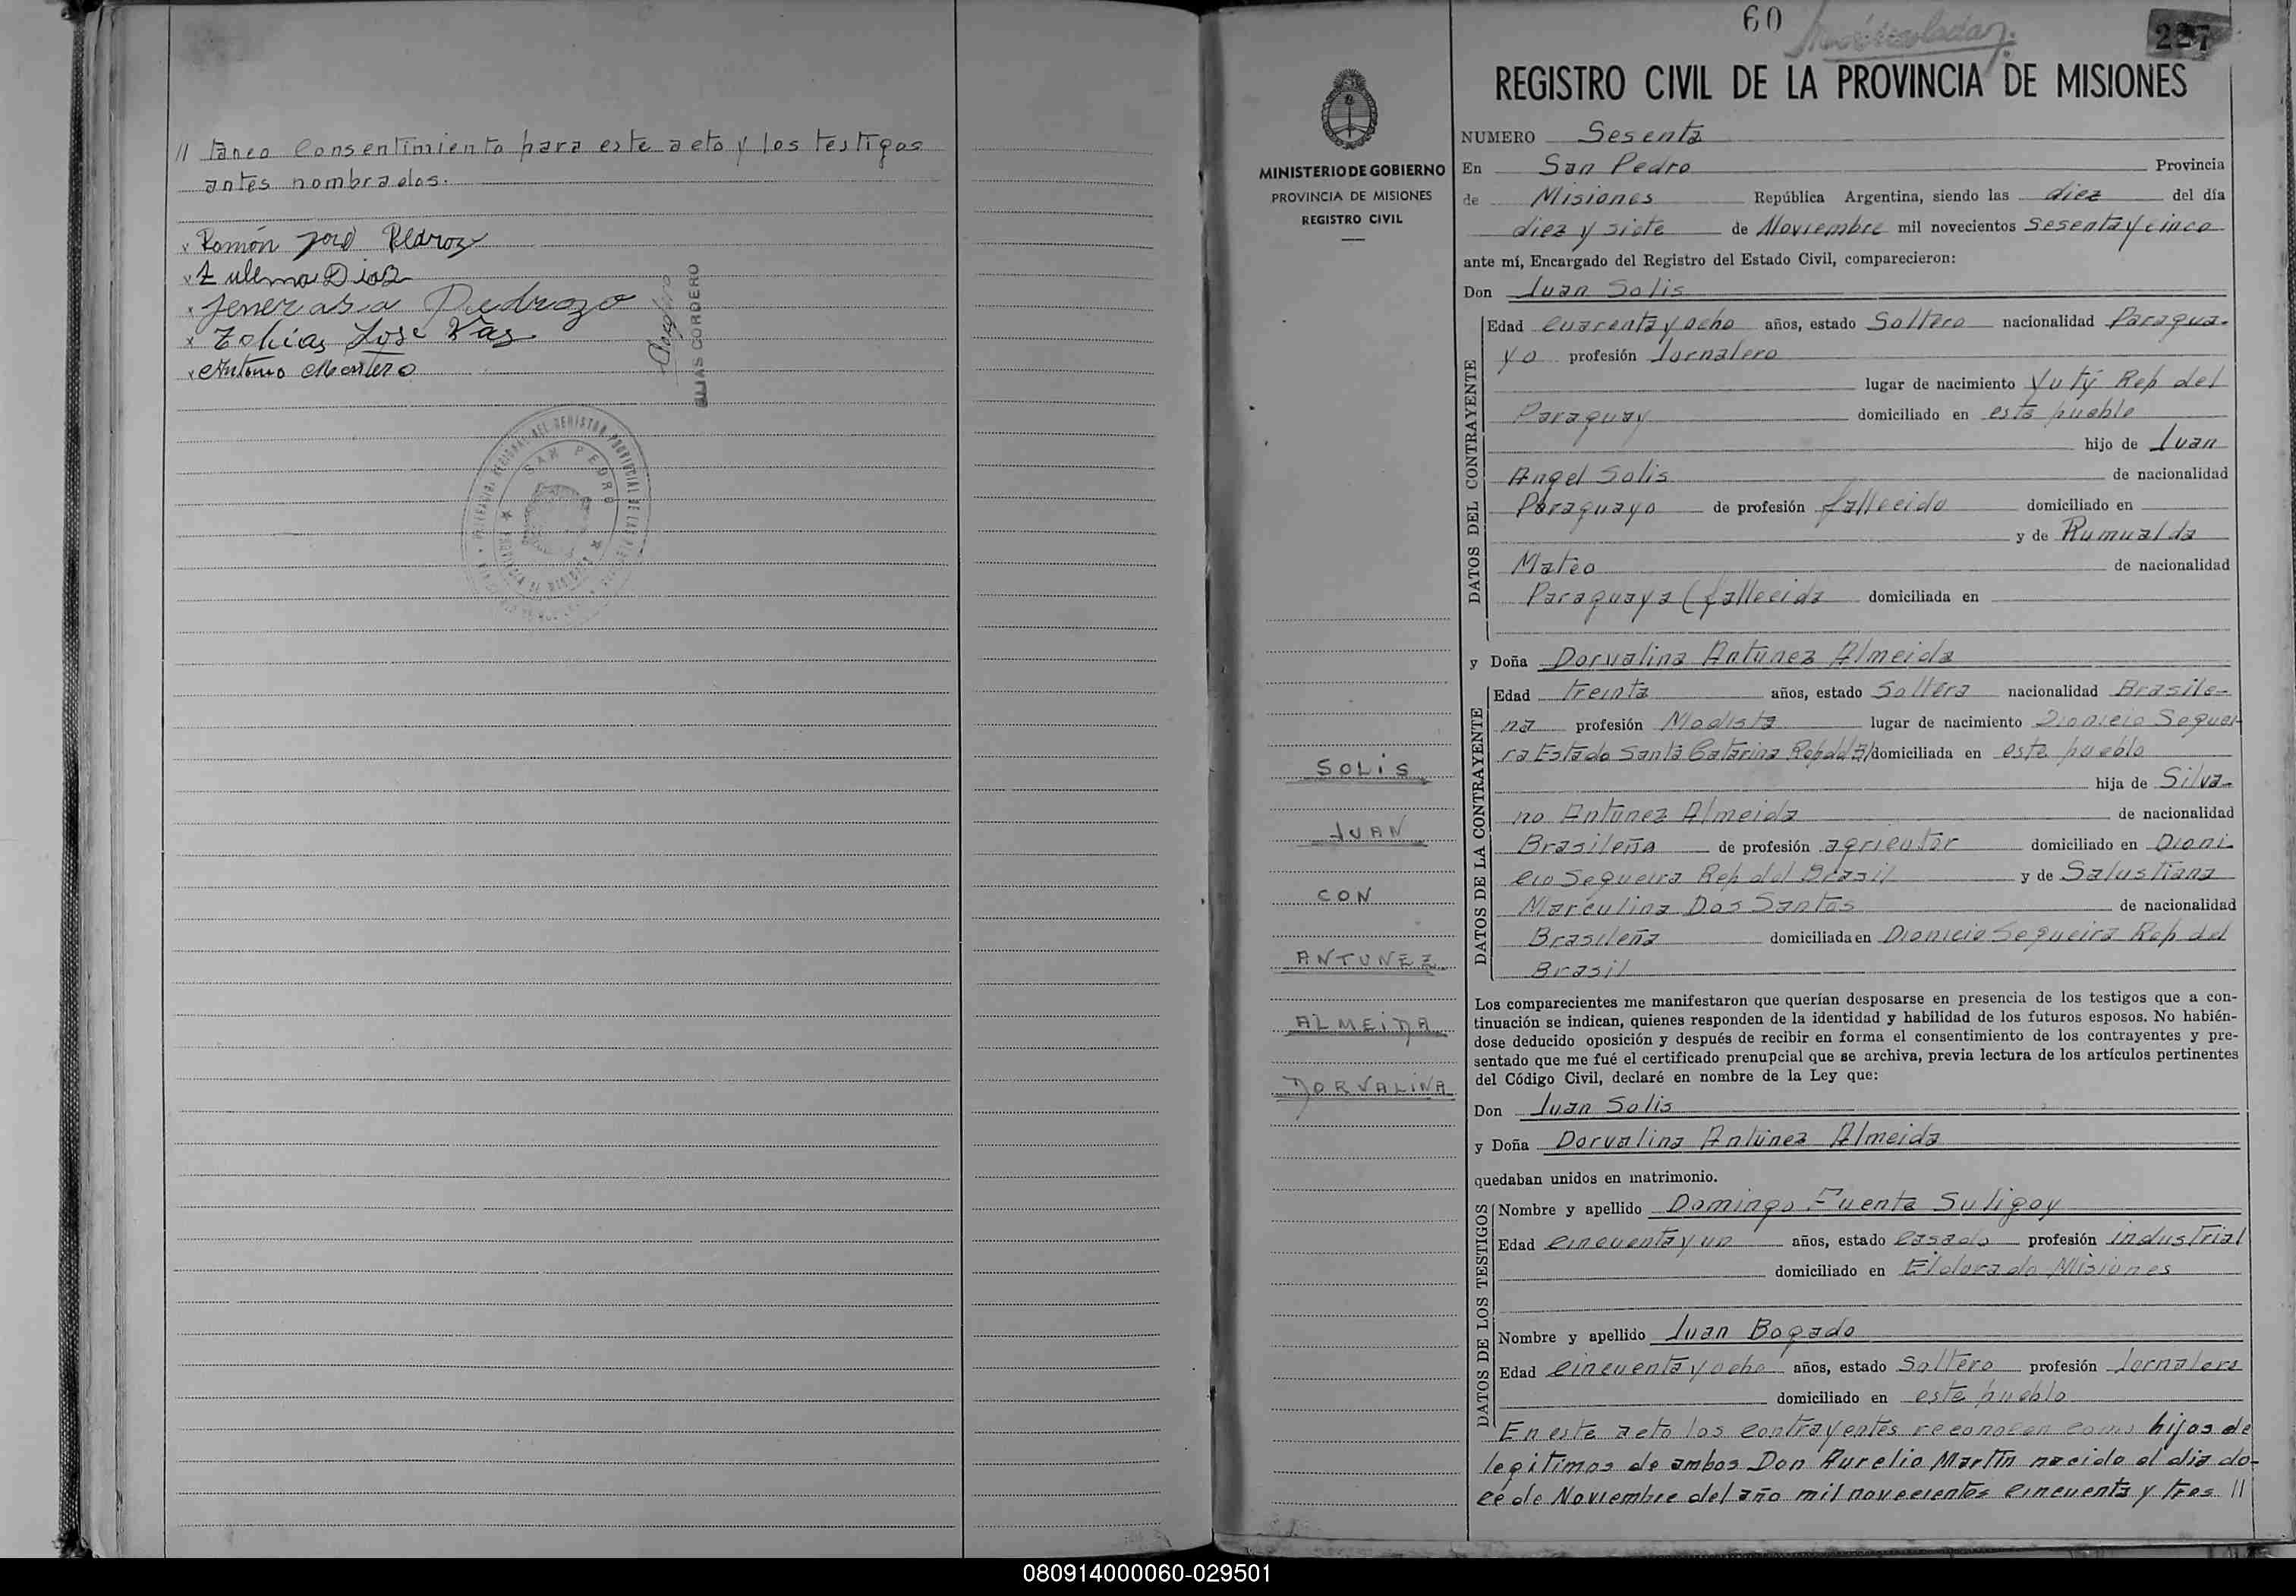 // taneo consentimiento para este acto y los testigos
antes nombrados.
x Ramón José Pedrozo
x Zulema Diaz
x Jenerasa Pedrozo
x Tobias Jose Vas
x Antonio Montero
ELIAS CORDERO
SAN PEDRO
60
227
REGISTRO CIVIL DE LA PROVINCIA DE MISIONES
MINISTERIO DE GOBIERNO
PROVINCIA DE MISIONES
REGISTRO CIVIL
NUMERO Sesenta
En San Pedro Provincia
de Misiones República Argentina, siendo las diez del día
diez y siete de Noviembre mil novecientos sesenta y cinco
ante mí, Encargado del Registro del Estado Civil, comparecieron:
Don Juan Solis
DATOS DEL CONTRAYENTE
Edad cuarenta y ocho años, estado Soltero nacionalidad Paragua-
yo profesión Jornalero
lugar de nacimiento Yuty Rep del
Paraguay domiciliado en este pueblo
hijo de Juan
Angel Solis de nacionalidad
Paraguayo de profesión fallecido domiciliado en
y de Rumualda
Mateo de nacionalidad
Paraguaya (fallecida domiciliada en
y Doña Dorvalina Antunez Almeida
DATOS DE LA CONTRAYENTE
Edad treinta años, estado Soltera nacionalidad Brasile-
na profesión Modista lugar de nacimiento Dionicio Sequei-
ra Estado Santa Catarina domiciliada en este pueblo
hija de Silva-
no Antunez Almeida de nacionalidad
Brasileña de profesión agricutor domiciliado en Dioni
cio Sequeira Rep del Brasil y de Salustiana
Marculina Dos Santos de nacionalidad
Brasileña domiciliada en Dionicio Sequeira Rep del
Brasil
SOLIS
JUAN
CON
ANTUNEZ
ALMEIDA
DORVALINA
Los comparecientes me manifestaron que querían desposarse en presencia de los testigos que a con-
tinuación se indican, quienes responden de la identidad y habilidad de los futuros esposos. No habién-
dose deducido oposición y después de recibir en forma el consentimiento de los contrayentes y pre-
sentado que me fué el certificado prenupcial que se archiva, previa lectura de los artículos pertinentes
del Código Civil, declaré en nombre de la Ley que:
Don Juan Solis
y Doña Dorvalina Antunez Almeida
quedaban unidos en matrimonio.
DATOS DE LOS TESTIGOS
Nombre y apellido Domingo Fuenta Suligoy
Edad cincuenta y un años, estado casado profesión industrial
domiciliado en Eldorado Misiones
Nombre y apellido Juan Bogado
Edad cincuenta y ocho años, estado Soltero profesión Jornalero
domiciliado en este pueblo
En este acto los contrayentes reconocen como hijos de
legitimos de ambos Don Aurelio Martín nacido el dia do-
ce de Noviembre del año mil novecientos cincuenta y tres //
080914000060-029501